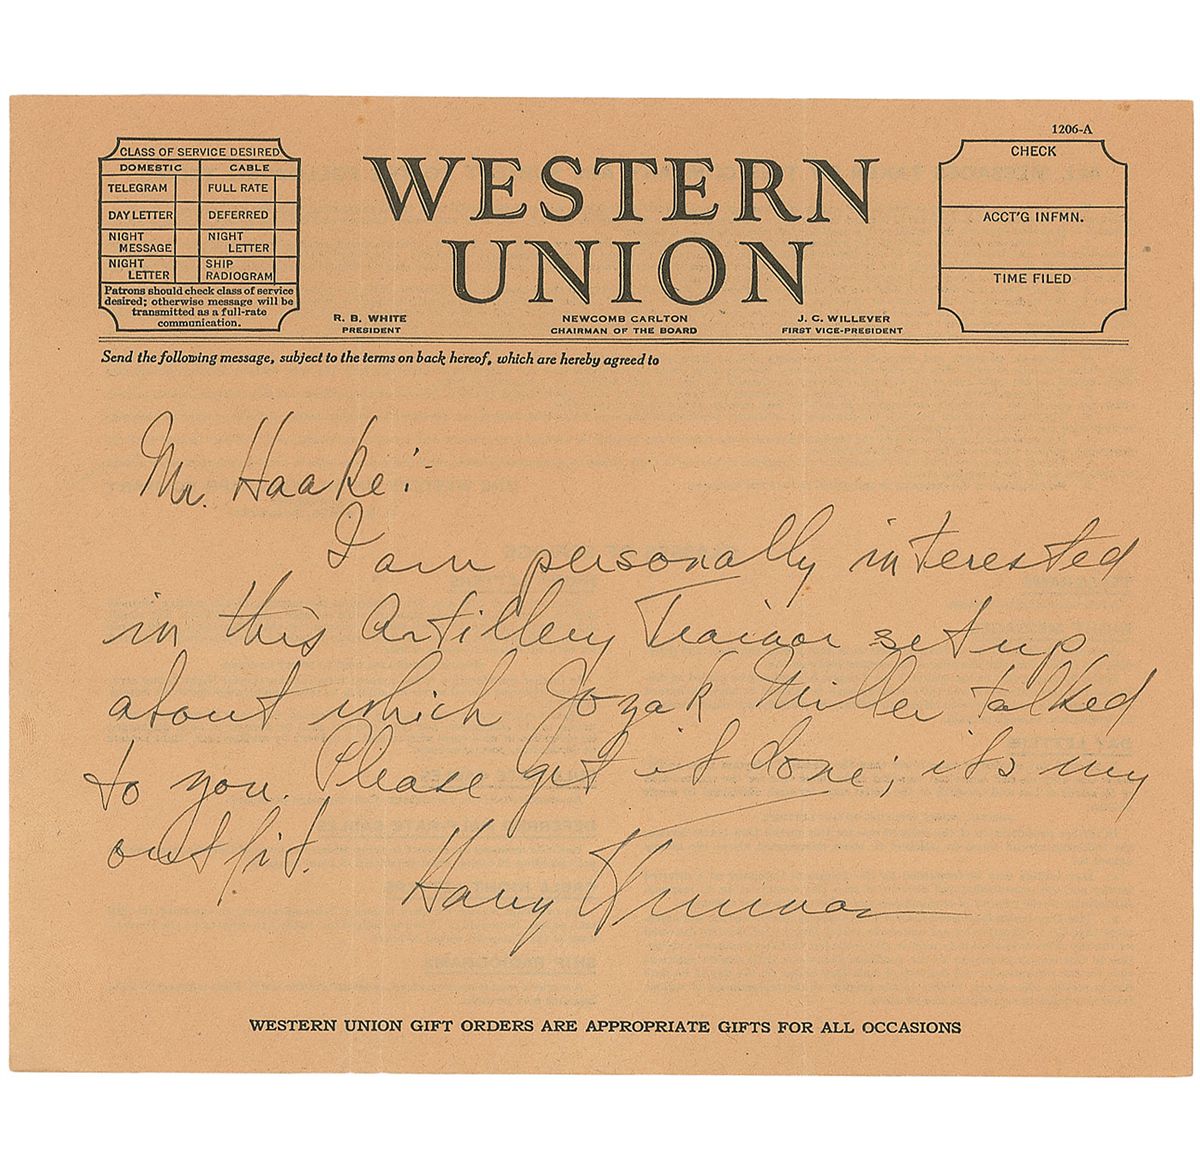 1206-A
CLASS OF SERVICE DESIRED
DOMESTIC CABLE
TELEGRAM FULL RATE
DAY LETTER DEFERRED
NIGHT MESSAGE NIGHT LETTER
NIGHT LETTER SHIP RADIOGRAM
Patrons should check class of service
desired; otherwise message will be
transmitted as a full-rate
communication.
WESTERN
UNION
R. B. WHITE
PRESIDENT
NEWCOMB CARLTON
CHAIRMAN OF THE BOARD
J. C. WILLEVER
FIRST VICE-PRESIDENT
CHECK
ACCT'G INFMN.
TIME FILED
Send the following message, subject to the terms on back hereof, which are hereby agreed to
Mr. Haake:-
I am personally interested
in this Artillery Trainor set up
about which Jozak Miller talked
to you. Please get it done; it's my
outfit. Harry Truman
WESTERN UNION GIFT ORDERS ARE APPROPRIATE GIFTS FOR ALL OCCASIONS